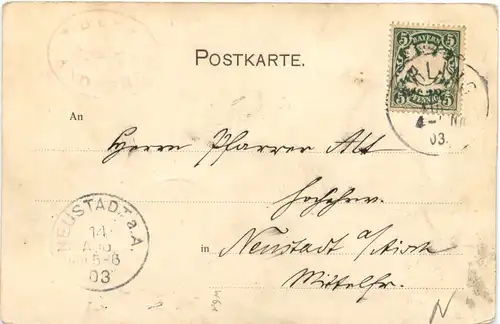 POSTKARTE.
BAYERN
5 5
5 PFENNIG 5
03.
An
Herrn Pfarrer Alt
Hochehrw.
in Neustadt a/Aisch
Mittelfr.
NEUSTADT a. A.
14
5-6
03
N